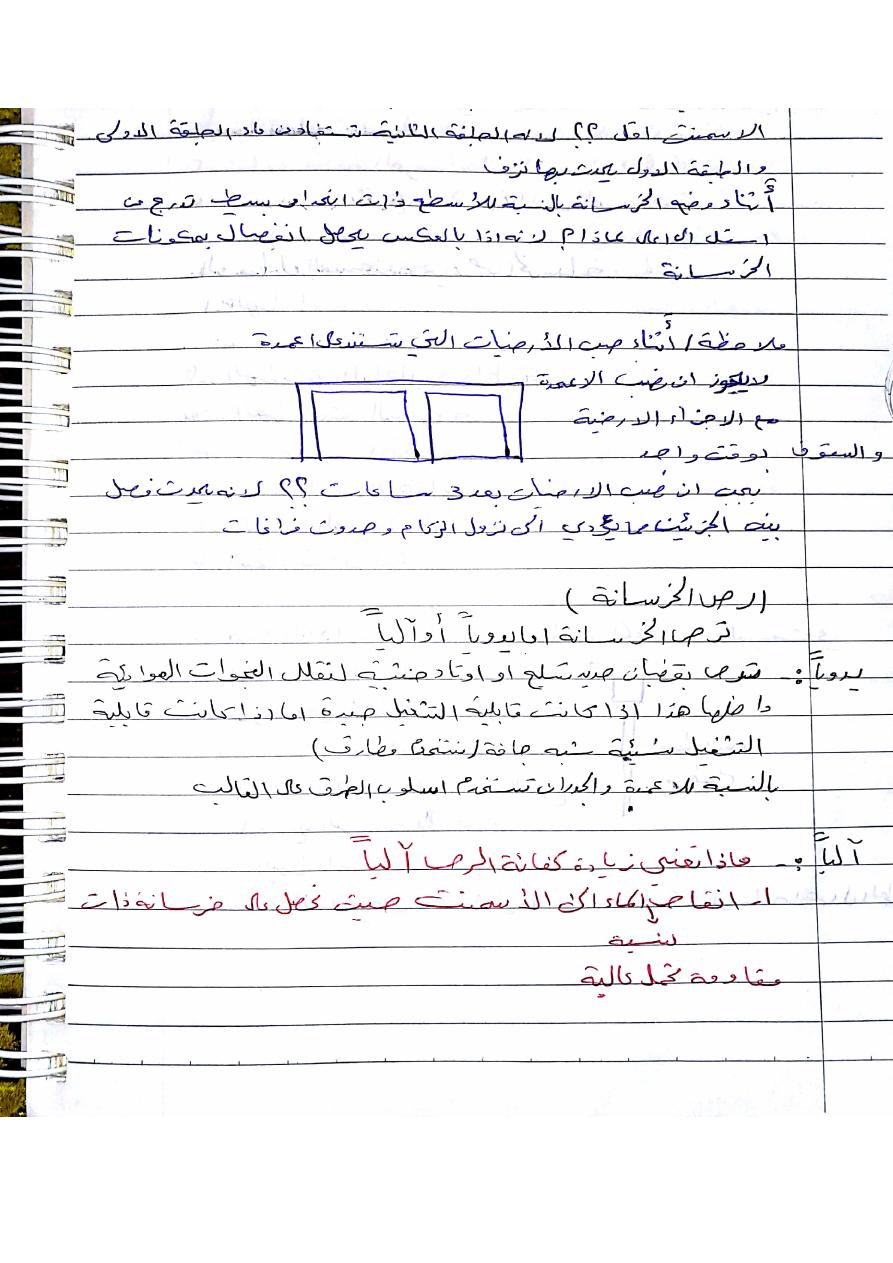 الاسمنت اقل ؟؟ لانه الطبقة الثانية تستفاد من ماء الطبقة الاولى
والطبقة الاول يحدث بها نزف
أثناء وضع الخرسانة بالنسبة للأسطح ذات انحدار بسيط تدرج من
اسفل الى اعلى لماذا؟ لانه اذا بالعكس يحصل انفصال بمكونات
الخرسانة
ملاحظة / أثناء صب الأرضيات التي تستند على اعمدة
لايجوز ان نصب الاعمدة
مع الاجزاء الارضية
والسقوف بوقت واحد
يجب ان نصب الارضيات بعد 3 ساعات ؟؟ لانه يحدث فصل
بين الجزئين مما يؤدي الى نزول الركام وحدوث فراغات
(رص الخرسانة)
ترص الخرسانة اما يدوياً أو آلياً
يدوياً :- ترص بقضبان حديد تسليح او اوتاد خشبية لتقليل الفجوات الهوائية
داخلها هذا اذا كانت قابلية التشغيل جيدة اما اذا كانت قابلية
التشغيل سيئة شبه جافة (نستخدم مطارق)
بالنسبة للاعمدة والجدران تستخدم اسلوب الطرق على القالب
آلياً :- ماذا تعني زيادة كفائة الرص آلياً
1. انقاص الماء الى الأسمنت حيث نحصل على خرسانة ذات
نسبة
مقاومة تحمل عالية